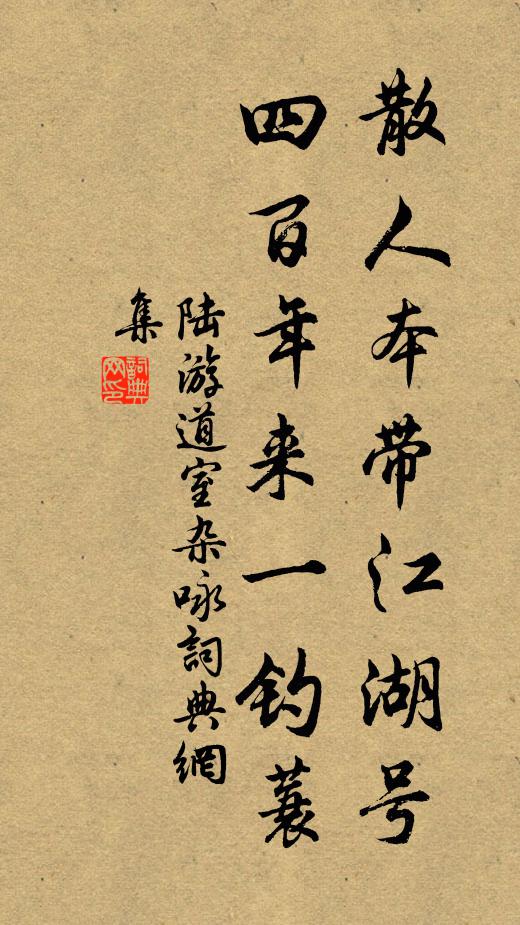 散人本带江湖号
四百年来一钓蓑
陆游道室杂咏詞典網
集
詞典网印